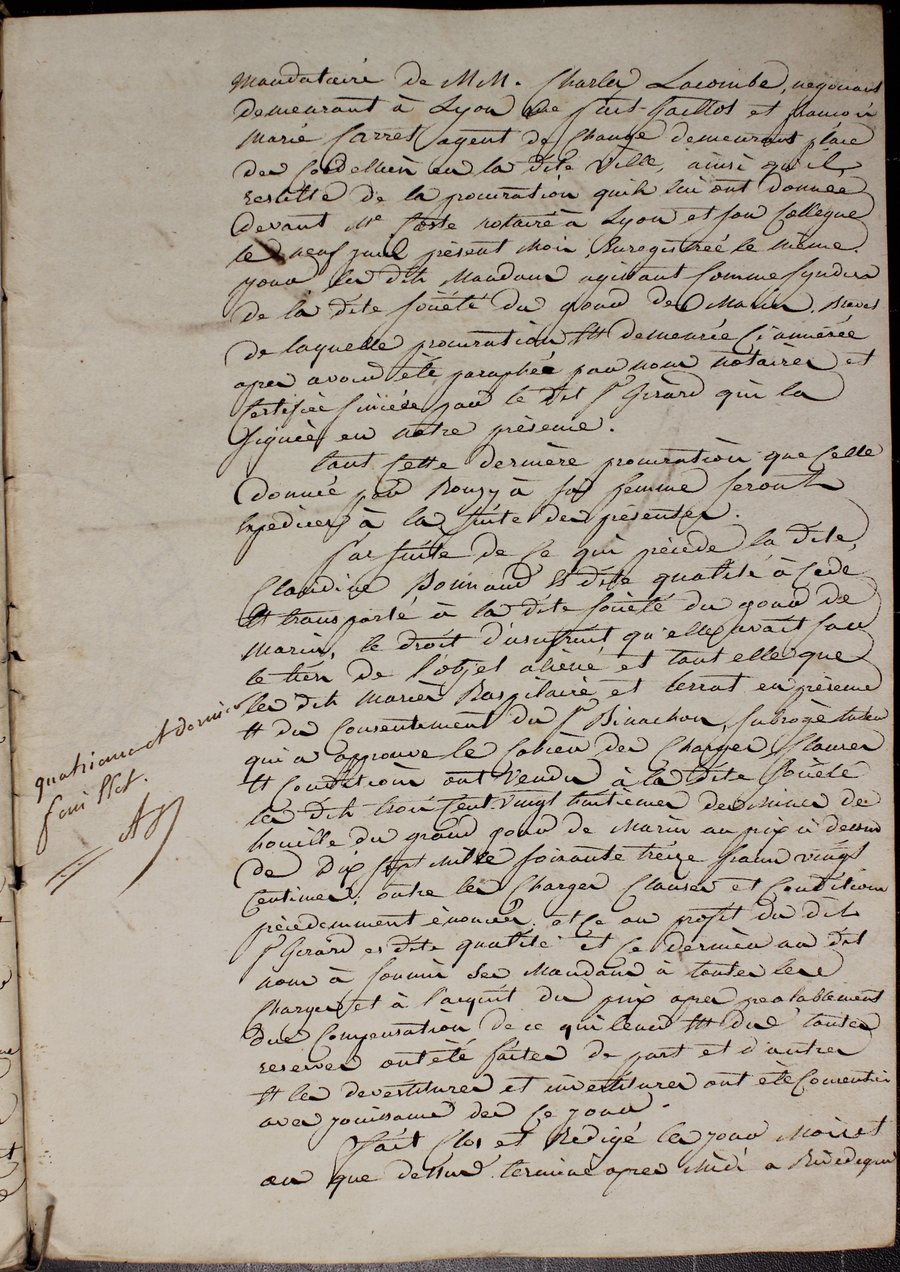 mandataire de MM. Charles Lacombe, negociant
demeurant à Lyon rue puit-Gaillot et françois
Marie Carret agent de Change demeurant place
des Cordeliers en la dite Ville, ainsi qu'il
resulte de la procuration quils lui ont donnée
devant Me Coste notaire à Lyon et son Collegue
le neuf juil present mois, Enregistrée le même
jour les dits Mandans agissant Comme Syndics
de la dite société du gour de Marin. Brevet
de laquelle procuration Est demeurée Ci annexée
apres avoir été paraphée par nous notaires et
Certifiée sincere par le dit Sr Girard qui la
signée en notre présence.
tant Cette dernière procuration que Celle
donnée par Bouzy à sa femme seront
Expédiées à la suite des presentes.
Par suite de Ce qui précède la dite
Claudine Bonnard Es dite qualité à Cédé
Et transporté à la dite société du gour de
Marin, le droit d'usufruit qu'elle avait sur
le tiers de l'objet aliéné et tant elle que
les dits mariés Baspilaire et terrat en présence
Et du Consentement du Sr Binachon, subrogé tuteur
qui a approuvé le Cahier des Charges Clauses
Et Conditions ont Vendu à la dite société
les dits trois Cent Vingt huitiemes des mines de
houille du grand gour de Marin au prix ci dessus
de Dix sept Mille soixante treize francs vingt
Centimes, outre les Charges Clauses et Conditions
précédemment énoncées, et Ce au profit du dit
Sr Girard es dite qualité et Ce dernier au dit
nom à soumis ses Mandans à toutes les
Charges et à l'acquit du prix apres prealablement
due Compensation de ce qui leur Est dû toutes
reserves ont été faites de part et d'autre
Et les devestitures et investitures ont été Consenties
avec jouissance des Ce jour.
Fait Clos et Rédigé les jour Mois et
an que dessus terminé apres Midi a Rivedegier
quatrieme et dernier